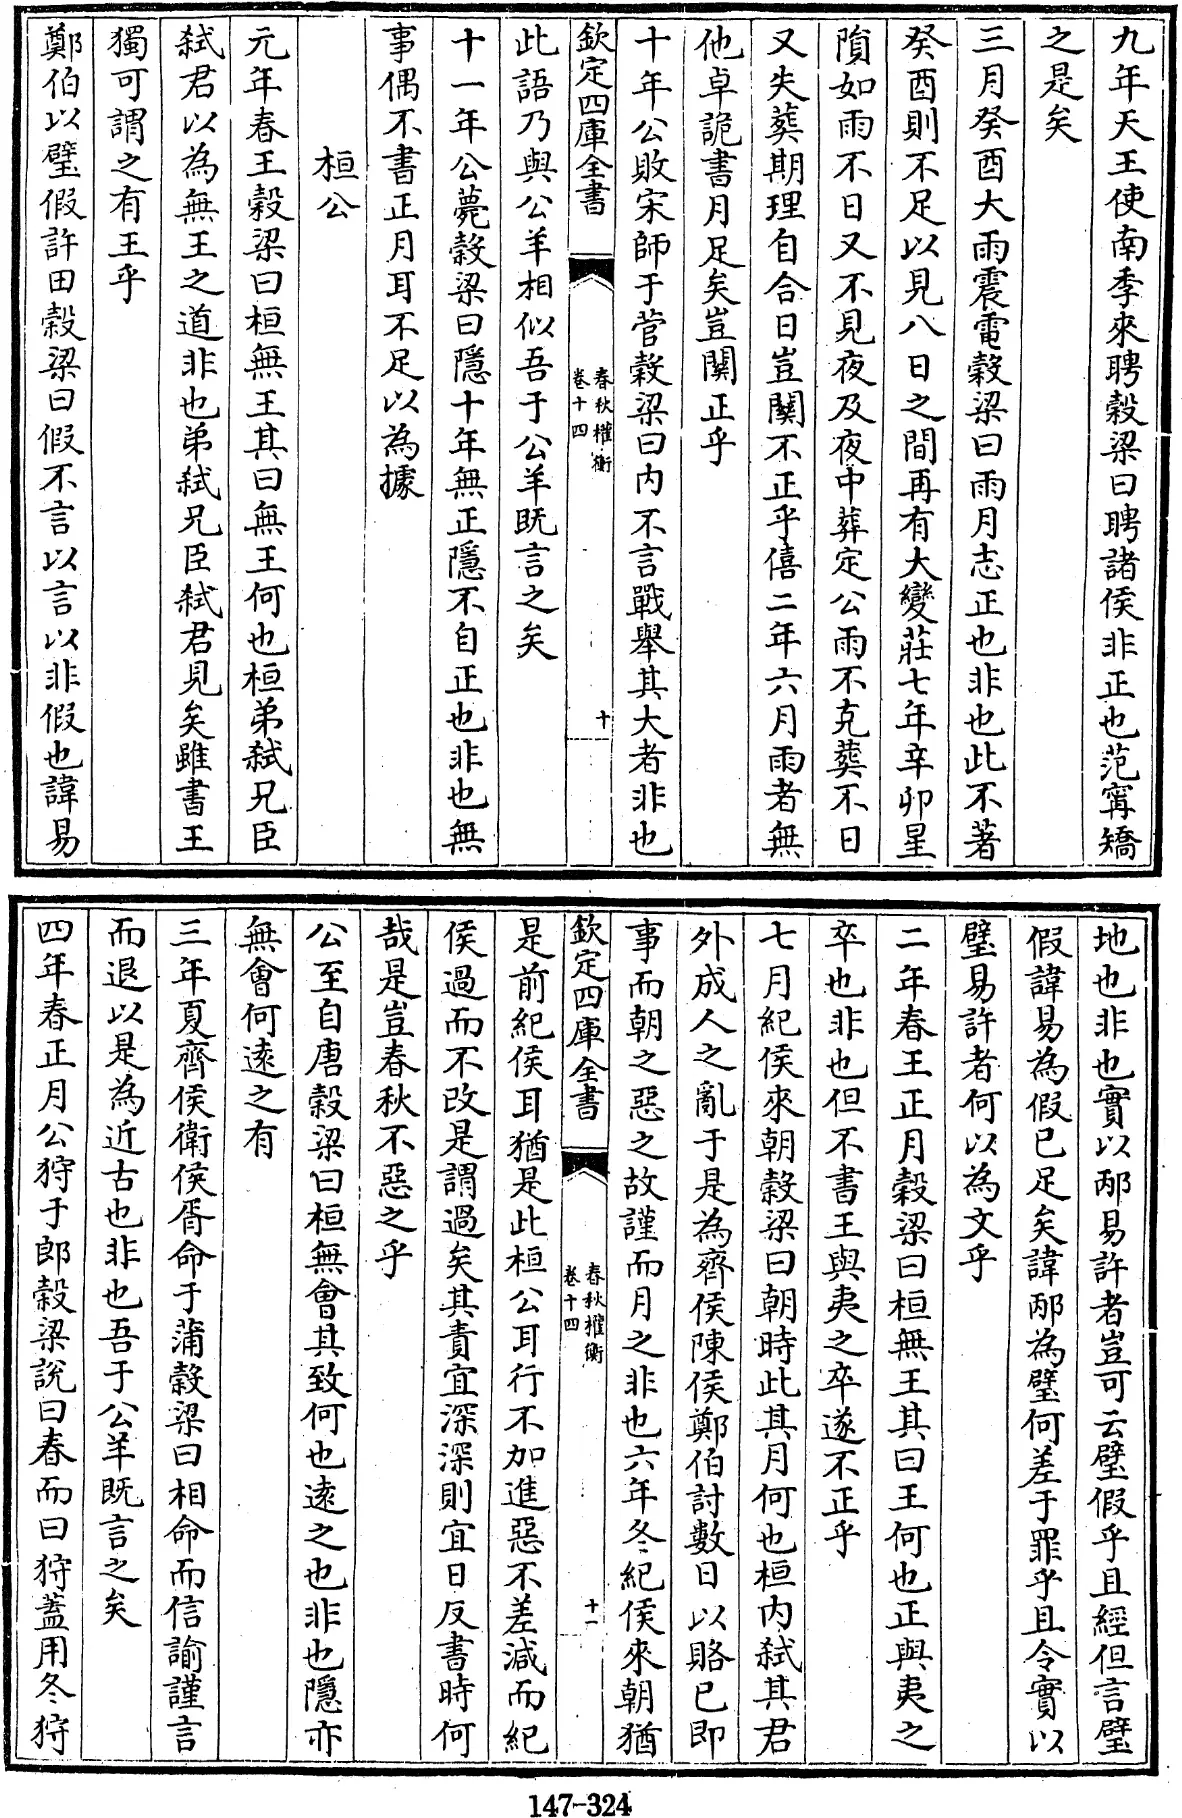 九年天王使南季來聘穀梁曰聘諸侯非正也范甯矯
之是矣
三月癸酉大雨震電穀梁曰雨月志正也非也此不著
癸酉則不足以見八日之間再有大變莊七年辛卯星
隕如雨不日又不見夜及夜中葬定公雨不克葬不日
又失葬期理自合日豈關不正乎僖二年六月雨者無
他卓詭書月足矣豈關正乎
十年公敗宋師于菅穀梁曰内不言戰舉其大者非也
欽定四庫全書
春秋權衡
卷十四
十
此語乃與公羊相似吾于公羊既言之矣
十一年公薨穀梁曰隱十年無正隱不自正也非也無
事偶不書正月耳不足以為據
桓公
元年春王穀梁曰桓無王其曰無王何也桓弟弑兄臣
弑君以為無王之道非也弟弑兄臣弑君見矣雖書王
獨可謂之有王乎
鄭伯以璧假許田穀梁曰假不言以言以非假也諱易
地也非也實以邴易許者豈可云璧假乎且經但言璧
假諱易為假已足矣諱邴為璧何差于罪乎且令實以
璧易許者何以為文乎
二年春王正月穀梁曰桓無王其曰王何也正與夷之
卒也非也但不書王與夷之卒遂不正乎
七月紀侯來朝穀梁曰朝時此其月何也桓内弑其君
外成人之亂于是為齊侯陳侯鄭伯討數日以賂已即
事而朝之惡之故謹而月之非也六年冬紀侯來朝猶
欽定四庫全書
春秋權衡
卷十四
十一
是前紀侯耳猶是此桓公耳行不加進惡不差減而紀
侯過而不改是謂過矣其責宜深深則宜日反書時何
哉是豈春秋不惡之乎
公至自唐穀梁曰桓無會其致何也遠之也非也隱亦
無會何遠之有
三年夏齊侯衛侯胥命于蒲穀梁曰相命而信諭謹言
而退以是為近古也非也吾于公羊既言之矣
四年春正月公狩于郎穀梁說曰春而曰狩蓋用冬狩
147-324